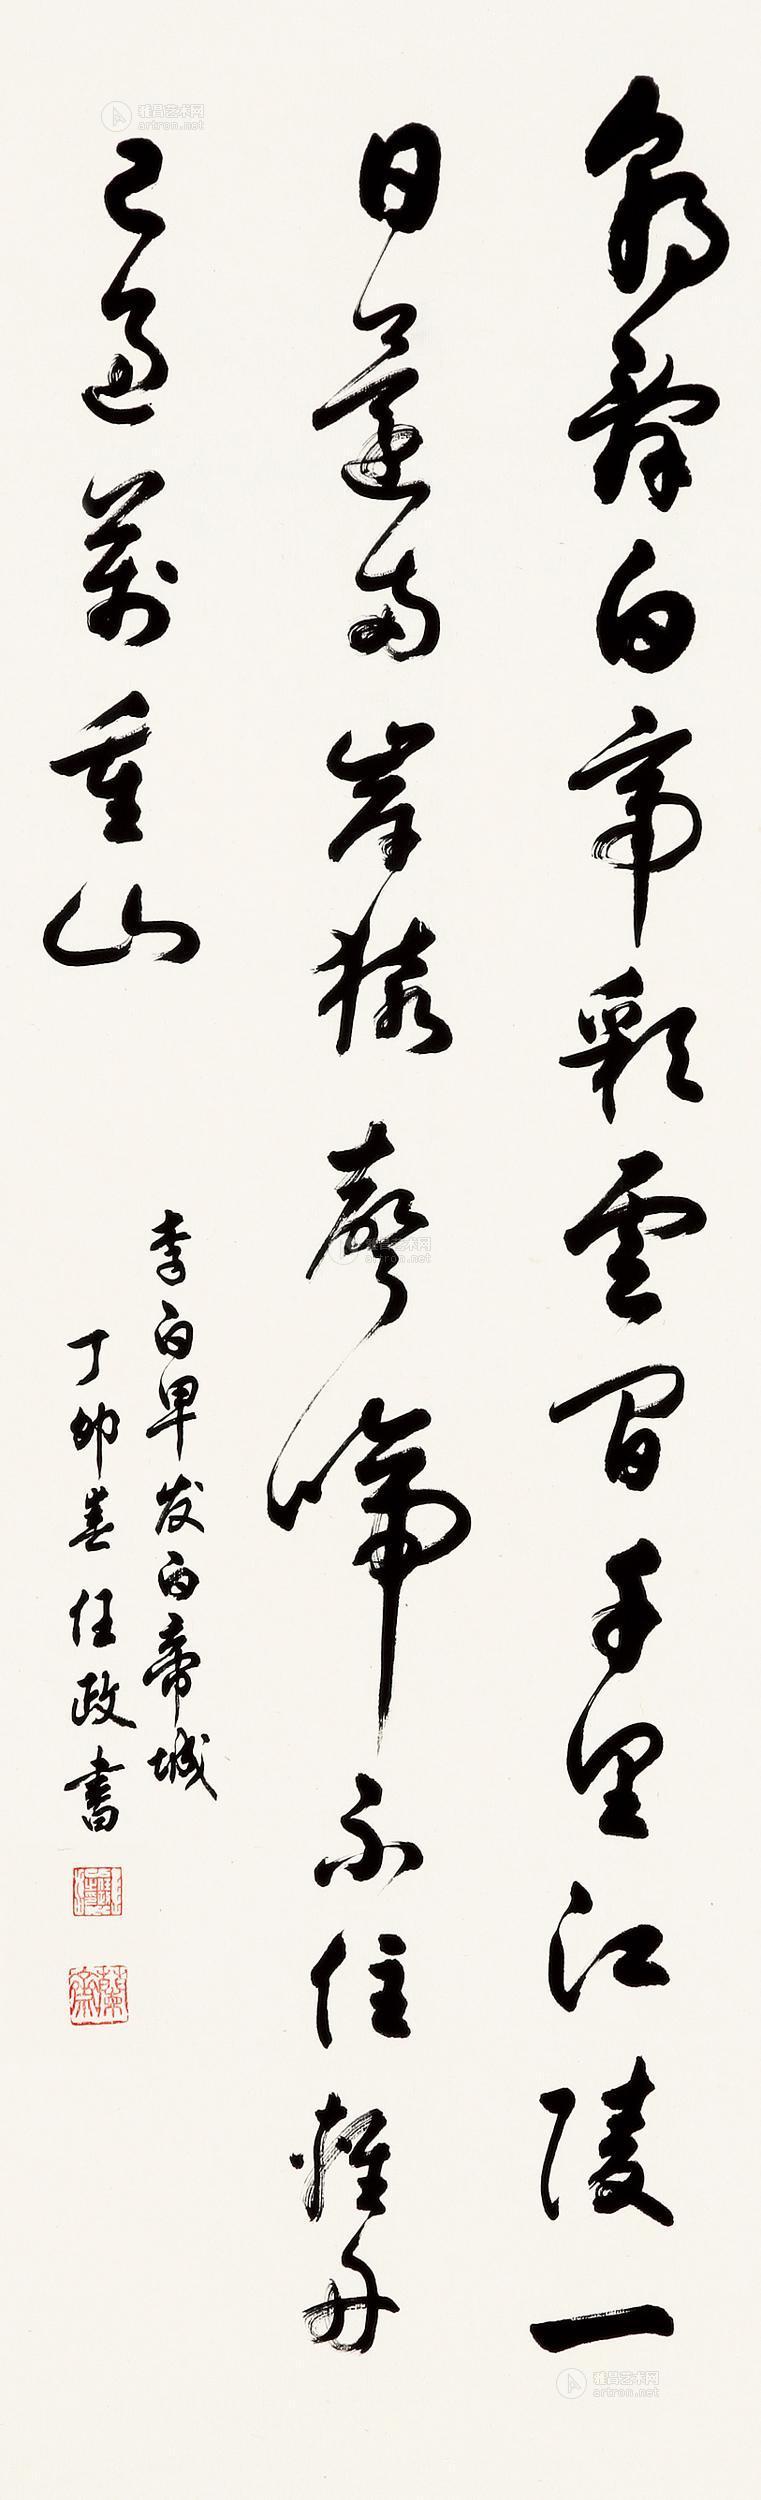 朝辞白帝彩云间千里江陵一
日还两岸猿声啼不住轻舟
已过万重山
李白早发白帝城
丁卯春任政书
雅昌艺术网
artron.net
雅昌艺术网
artron.net
雅昌艺术网
artron.net